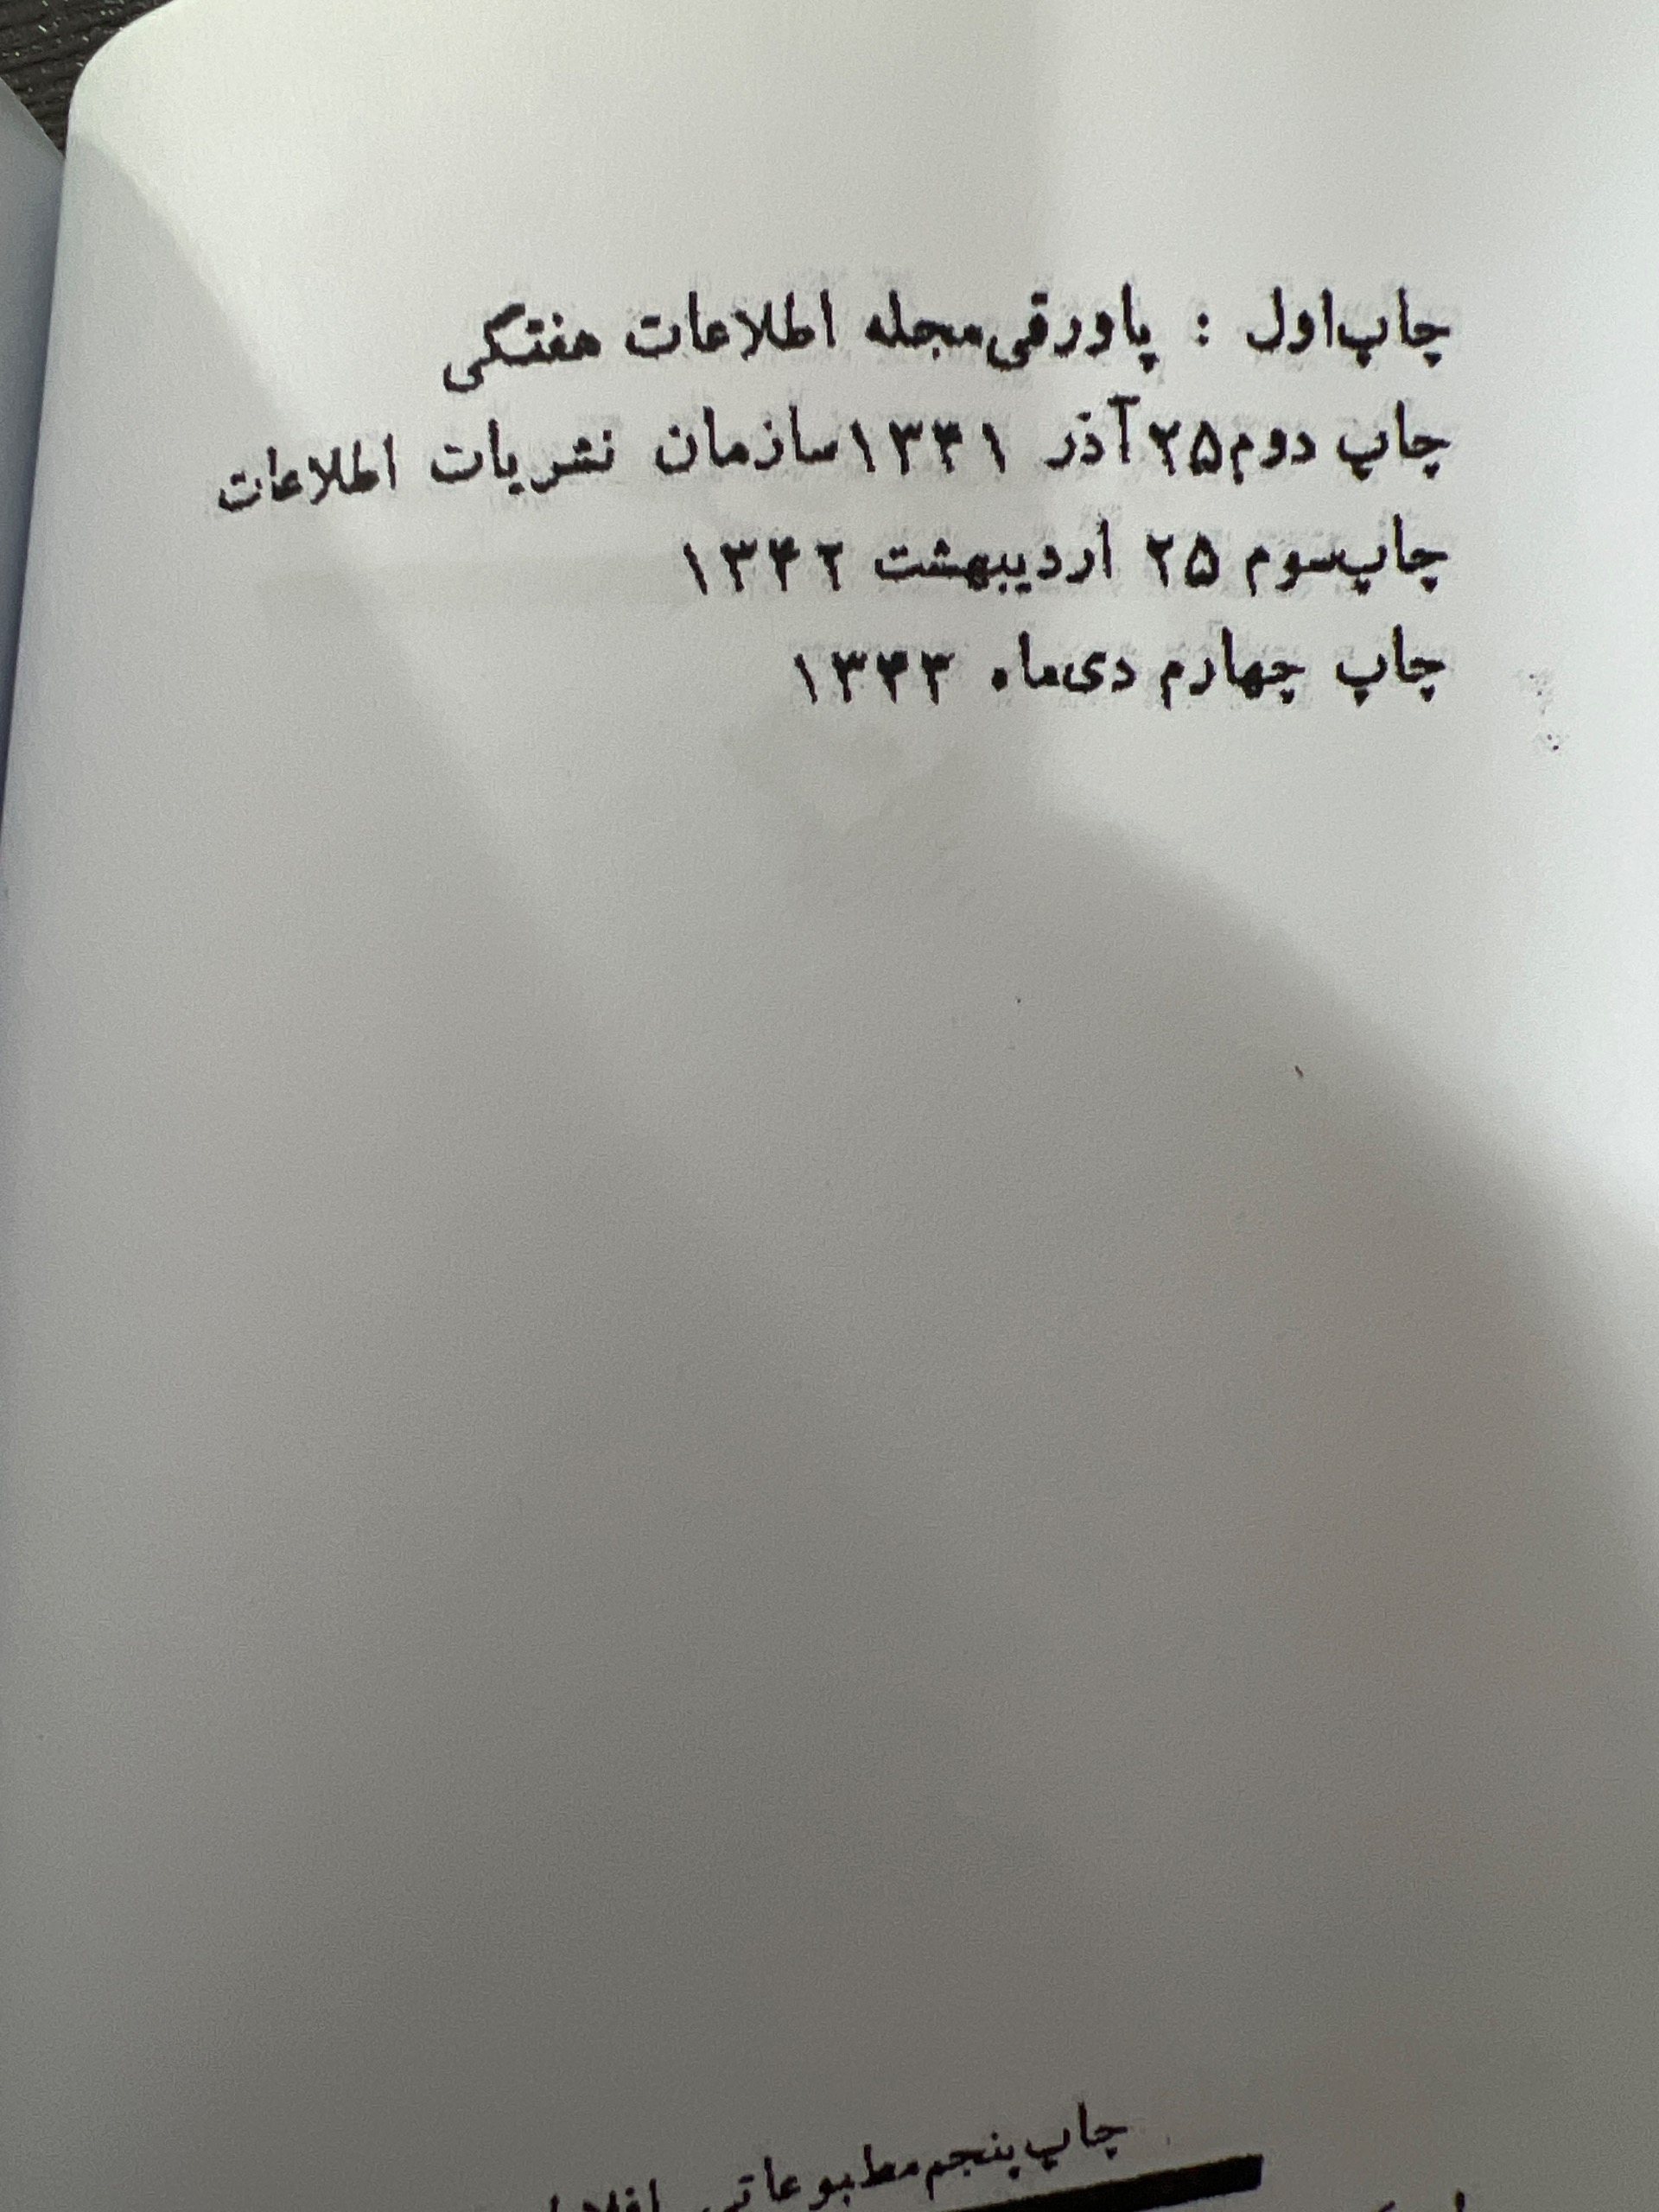 چاپ‌اول : پاورقی‌مجله اطلاعات هفتگی
چاپ دوم۲۵آذر ۱۳۳۱سازمان نشریات اطلاعات
چاپ‌سوم ۲۵ اردیبهشت ۱۳۴۲
چاپ چهارم دی‌ماه ۱۳۴۳
چاپ‌پنجم‌مطبوعاتی